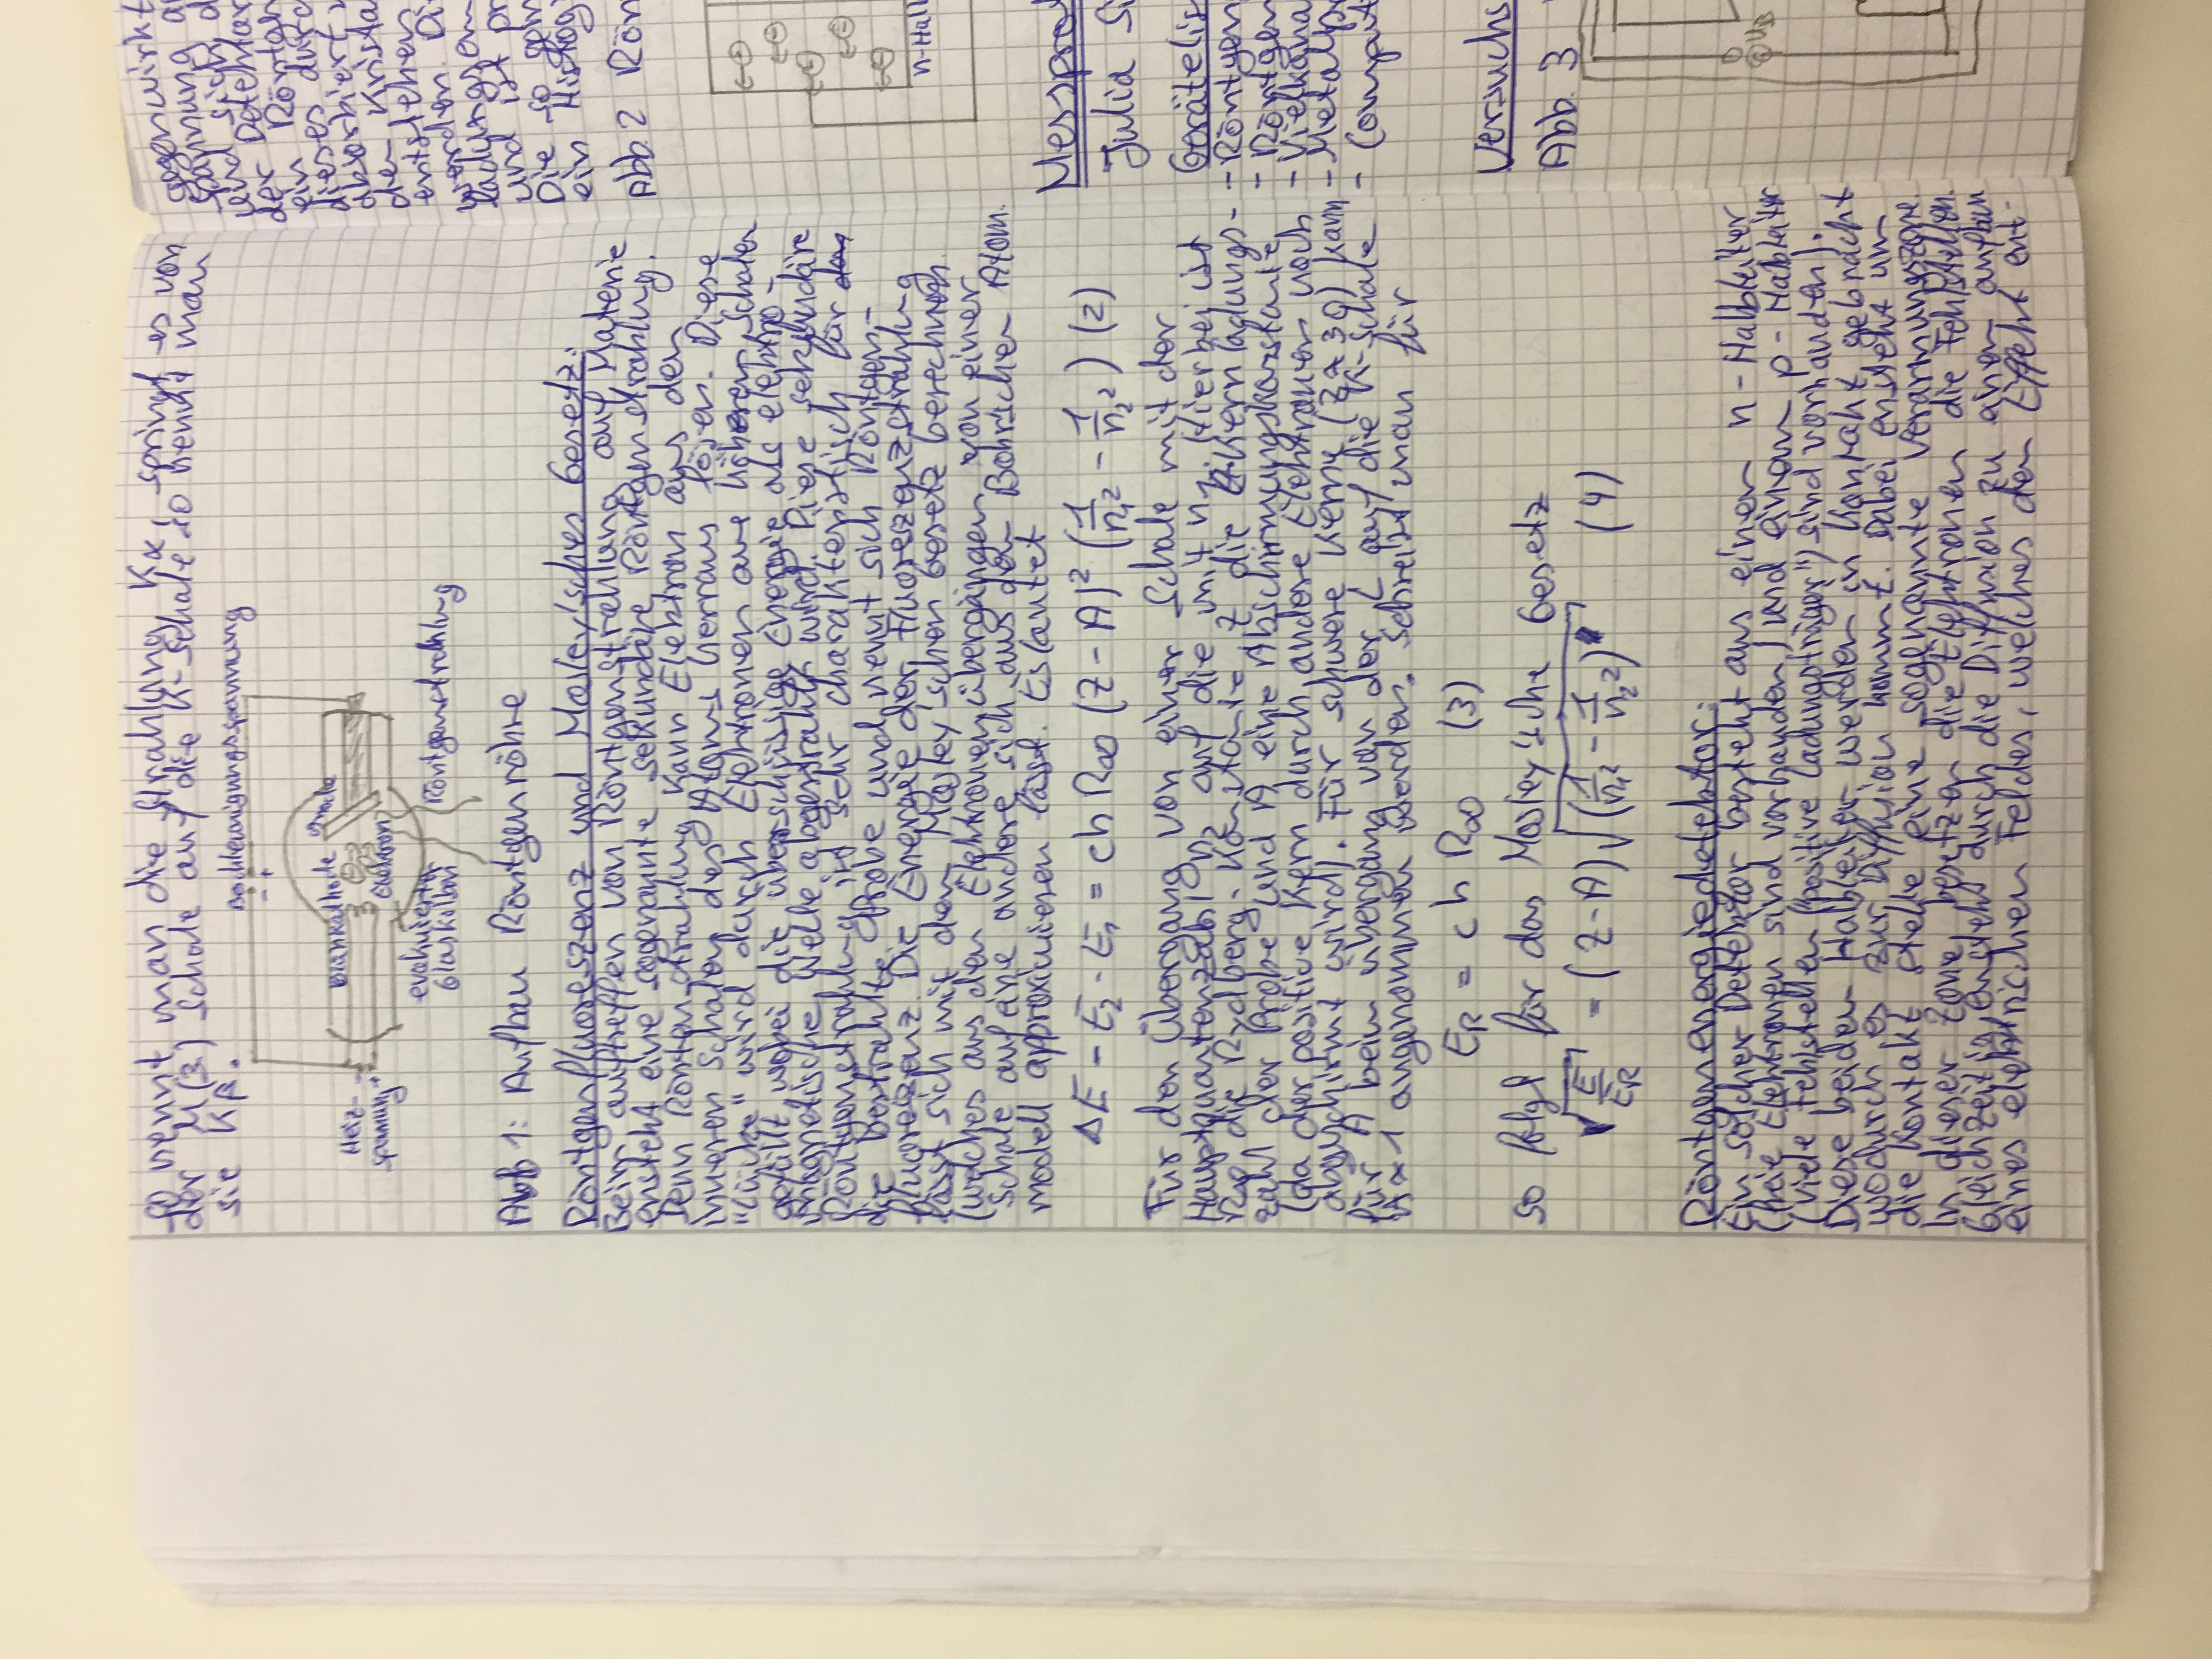 so nennt man die Strahlung Kα, springt es von
der M(3.) Schale auf die K-Schale so nennt man
sie Kβ.
Beschleunigungsspannung
- +
Glühkathode
Anode
Heiz-
spannung
Elektron
evakuierter
Glaskolben
Röntgenstrahlung
Abb 1: Aufbau Röntgenröhre
Röntgenfluoreszenz und Mosley'sches Gesetz:
Beim auftreffen von Röntgenstrahlung auf Materie
ensteht eine sogenannte sekundäre Röntgenstrahlung.
Denn Rönten strahlung kann Elektron aus den
inneren Schalen des Atoms herraus lösen. Diese
"Lücke" wird durch Elektronen aus höheren Schalen
gefüllt, wobei die überschüssige Energie als elektro-
magnetische Welle abgestrahlt wird. Diese sekundäre
Röntgenstrahlung ist sehr charakteristisch für
die bestrahlte Probe und nennt sich Röntgen-
fluoreszenz. Die Energie der Fluoreszenzstrahlung
lässt sich mit dem Mosley'schen Gesetz berechnen
(welches aus den Elektronenübergängen von einer
Schale auf eine andere sich aus dem Bohrschen Atom.
modell approximieren lässt. Es lautet
ΔE = E₂ - E₁ = ch R∞ (Z - A)² (1/n₁² - 1/n₂²) (2)
Für den Übergang von einer Schale mit der
Hauptquantenzahl n₂ auf die mit n₁. Hierbei ist
R∞ die Rydberg-Konstante, Z die Kernladungs-
zahl der Probe und A eine Abschirmungskonstante
(da der positive Kern durch andere Elektronen noch
abgeschirmt wird). Für schwere Kerne (Z≈30) kann
für A beim übergang von der L auf die K-Schale
A≈1 angenommen werden. Schreibt man für
E_R = ch R∞ (3)
so folgt für das Mosley'sche Gesetz
√(E/E_R) = (Z-A) √(1/n₁² - 1/n₂²) (4)
Röntgenenergiedetektor:
Ein solcher Detektor besteht aus einem n-Halbleiter
(freie Elektronen sind vorhanden) und einem p-Halbleiter
(viele Fehlstellen ("positive Ladungsträger") sind vorhanden).
Diese beiden Halbleiter werden in Kontakt gebracht
wodurch es zur Diffusion kommt. Dabei ensteht um
die Kontakt stelle eine sogenannte Verarmungszone.
In dieser Zone besetzen die Elektronen die Fehlstellen.
Gleichzeitig ensteht durch die Diffusion zu einem aufbau
eines elektrischen Feldes, welches dem Effekt ent-
gegenwirkt
Spannung
und sich
der Detektor
ein Röntg
dieses durc
absorbiert
den Krista
entstehen
werden. Di
ladungsem
und ist pr
Die so
ein Histog
Abb. 2 Rön
n-Hall
Messprot
Julia Si
Gerätelis
- Röntgen
- Röntgen
- Vielkana
- Metallpr
- Comput
Versuchs
Abb. 3
U_B